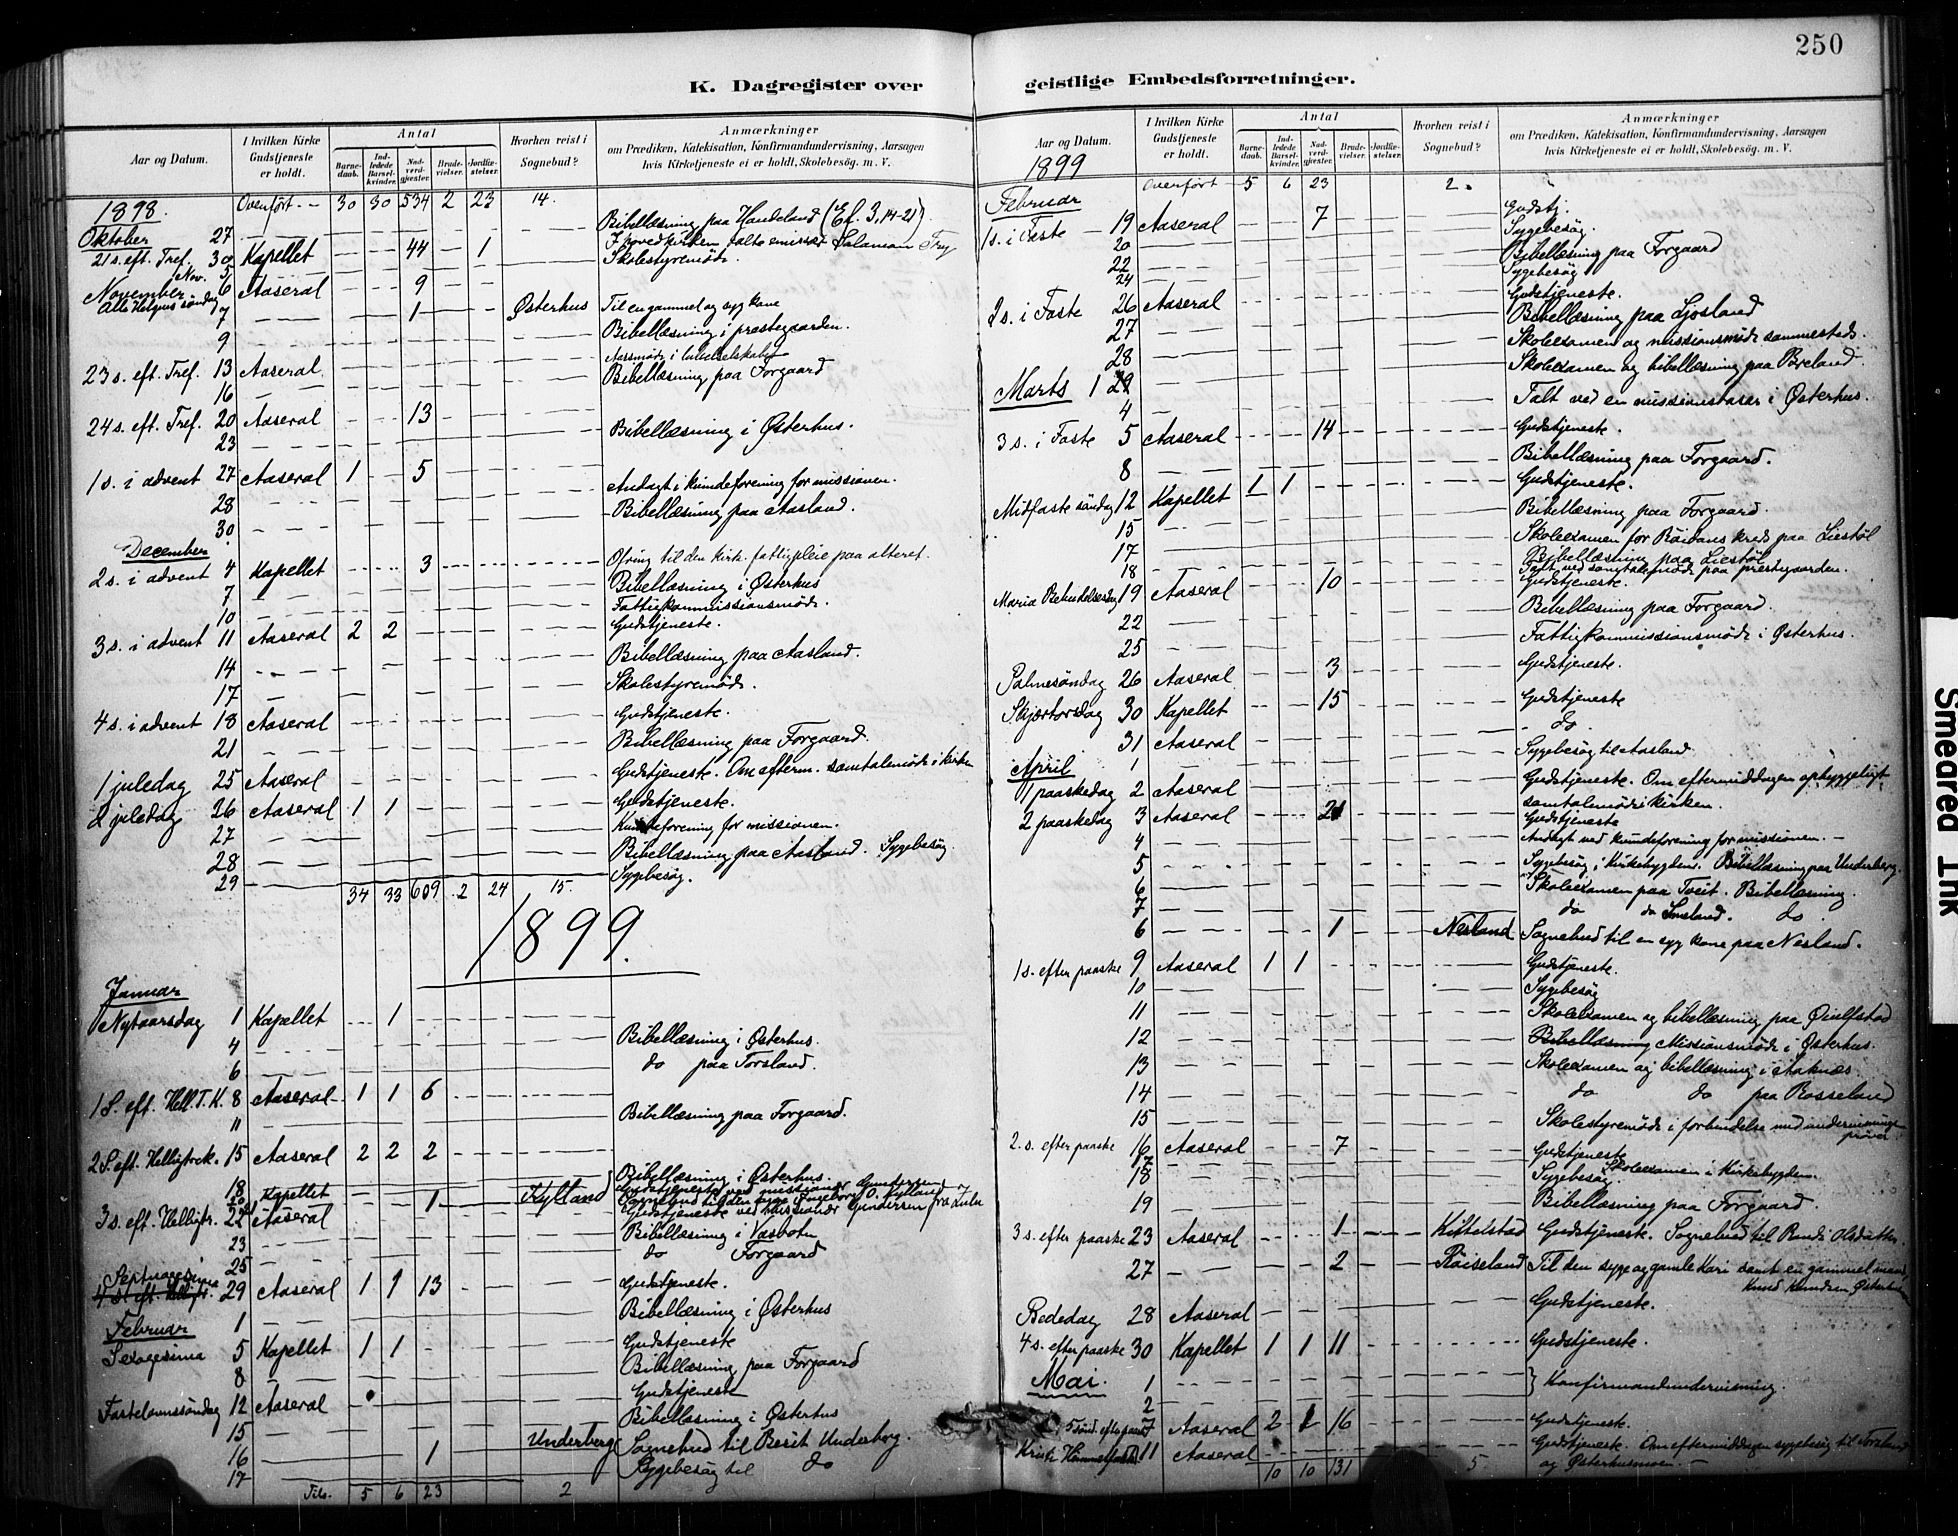 250
K. Dagregister over geistlige Embedsforretninger.
Aar og Datum. I hvilken Kirke Gudstjeneste er holdt. Antal Barnedaab. Indledede Barselkvinder. Nadverdgjæster. Brudevielser. Jordfæstelser. Hvorhen reist i Sognebud? Anmærkninger om Prædiken, Katekisation, Konfirmandundervisning, Aarsagen hvis Kirketjeneste ei er holdt, Skolebesøg. m. V.
1898. Overført -- 30 30 534 2 23 14.
Oktober 27 Bibellæsning paa Handeland (Ef. 3, 14-21).
21 s. eft. Tref. 30 Kapellet 44 1 I hovedkirken talte emissær Salamon
Nov. 5 Skolestyremøde.
November 6 Aaseral 9
Alle Helgens søndag
7 1 Østerhus Til en gammel og syg kone
9 Bibellæsning i præstegaarden.
23 s. eft. Tref. 13 Aaseral Aarsmøde i
16 Bibellæsning paa Forgaard
24 s. eft. Tref. 20 Aaseral 13
23 Bibellæsning i Østerhus.
1 s. i advent 27 Aaseral 1 5
28 Andagt i kvindeforening for missionen.
30 Bibellæsning paa Aasland.
December
2 s. i advent 4 Kapellet 3 Ofring til den kirk. fattigpleie paa alteret.
7 Bibellæsning i Østerhus
10 Fattigkommissionsmøde.
3 s. i advent 11 Aaseral 2 2 Gudstjeneste.
14 Bibellæsning paa Aasland.
17 Skolestyremøde.
4 s. i advent 18 Aaseral Gudstjeneste.
21 Bibellæsning paa Forgaard.
1 juledag 25 Aaseral Gudstjeneste. Om efterm. samtalemøde i kirken
2 juledag 26 Aaseral 1 1 Gudstjeneste.
27 Kvindeforening for missionen.
28 Bibellæsning paa Aasland. Sygebesøg.
29 Sygebesøg.
34 33 609 2 24 15.
1899.
Januar
Nytaarsdag 1 Kapellet 1
4 Bibellæsning i Østerhus.
6 do paa Forsland.
1 S. eft. Hell. T. K. 8 Aaseral 1 1 6
11 Bibellæsning paa Forgaard.
2 S. eft. Helligtrek. 15 Aaseral 2 2 2
18 Bibellæsning i Østerhus.
20 Kapellet Gudstjeneste ved missionær Gundersen
1 Kylland Sognebud til den syge Ingeborg O. Kylland
3 s. eft. Helligtr. 22 Aaseral Gudstjeneste ved missionær Gundersen fra Zulu
23 Bibellæsning i Vasbotn
25 do Forgaard
Septuagesima
4 s. eft. Helligtr. 29 Aaseral 1 1 13 Gudstjeneste.
Februar 1 Bibellæsning i Østerhus
Sexagesima 5 Kapellet 1 1 Gudstjeneste
8 Bibellæsning paa Forgaard
Fastelavnssøndag 12 Aaseral Gudstjeneste
15 Bibellæsning i Østerhus
16 1 Underberg Sognebud til Berit Underberg.
17 Sygebesøg til do
5 6 23 2
Aar og Datum. I hvilken Kirke Gudstjeneste er holdt. Antal Barnedaab. Indledede Barselkvinder. Nadverdgjæster. Brudevielser. Jordfæstelser. Hvorhen reist i Sognebud? Anmærkninger om Prædiken, Katekisation, Konfirmandundervisning, Aarsagen hvis Kirketjeneste ei er holdt, Skolebesøg. m. V.
1899
Overført 5 6 23 2.
Februar
1 s. i Faste 19 Aaseral 7 Gudstj.
20 Sygebesøg.
22 Bibellæsning paa Forgaard
24 Sygebesøg
2 s. i Faste 26 Aaseral Gudstjeneste.
27 Bibellæsning paa Ljosland
28 Skoleexamen og missionsmøde sammesteds.
Marts 1 Skoleexamen og bibellæsning paa Breland.
4 Talt ved en missionsbasar i Østerhus.
3 s. i Faste 5 Aaseral 14 Gudstjeneste.
8 Bibellæsning paa Forgaard.
Midfaste søndag 12 Kapellet 1 1 Gudstjeneste.
15 Bibellæsning paa Forgaard.
17 Skoleexamen for Röisens kreds paa Liestöl
Bibellæsning paa Liestöl
18 Talt ved samtalemøde paa prestegaarden.
Maria Bebudelsesdag 19 Aaseral 10 Gudstjeneste.
22 Bibellæsning paa Forgaard.
25 Fattigkommissionsmøde i Østerhus.
Palmesøndag 26 Aaseral 3 Gudstjeneste.
Skjærtorsdag 30 Kapellet 15 Gudstjeneste
31 Aaseral do
April 1 Sygebesøg til Aasland
1 paaskedag 2 Aaseral Gudstjeneste. Om eftermiddagen opbyggeligt
samtalemøde i kirken.
2 paaskedag 3 Aaseral 21 Gudstjeneste
4 Andagt ved kvindeforening for missionen. -
5 Sygebesøg i Kirkebygden. Bibellæsning paa Underberg.
6 Skoleexamen paa Tveit. Bibellæsning.
7 do do Smeland. do
6 1 Nesland Sognebud til en syg kone paa Nesland.
1 s. efter paaske 9 Aaseral 1 1 Gudstjeneste.
10 Sygebesøg
11 Skoleexamen og bibellæsning paa
12 Bibellæsning Missionsmøde i Østerhus.
13 Skoleexamen og bibellæsning i Aaknæs.
14 do do paa Rosseland
15 Skolestyremøde i forbindelse med undervisnings-
prøver
2. s. efter paaske 16 Aaseral 7 Gudstjeneste
17 Skoleexamen i Kirkebygden.
18 Sygebesøg.
19 Bibellæsning paa Forgaard.
3 s. efter paaske 23 Aaseral 1 Kittelstad Gudstjeneste. Sognebud til Olsdatter
27 2 Röiseland Til den syge og gamle Kari samt en gammel mand,
Knud Knudsen Østerhus
Bededag 28 Aaseral Gudstjeneste.
4 s. efter paaske 30 Kapellet 1 1 11 Gudstjeneste.
Mai. 1
2 } Konfirmandundervisning.
5 sønd. efter paaske 7 Aaseral 2 1 16 Gudstjeneste.
Kristi Himmelfartsd. 11 Aaseral Gudstjeneste. Om eftermiddagen sygebesøg til Forsland
10 10 131 5 og Østerhusmoen. -
Smeared Ink